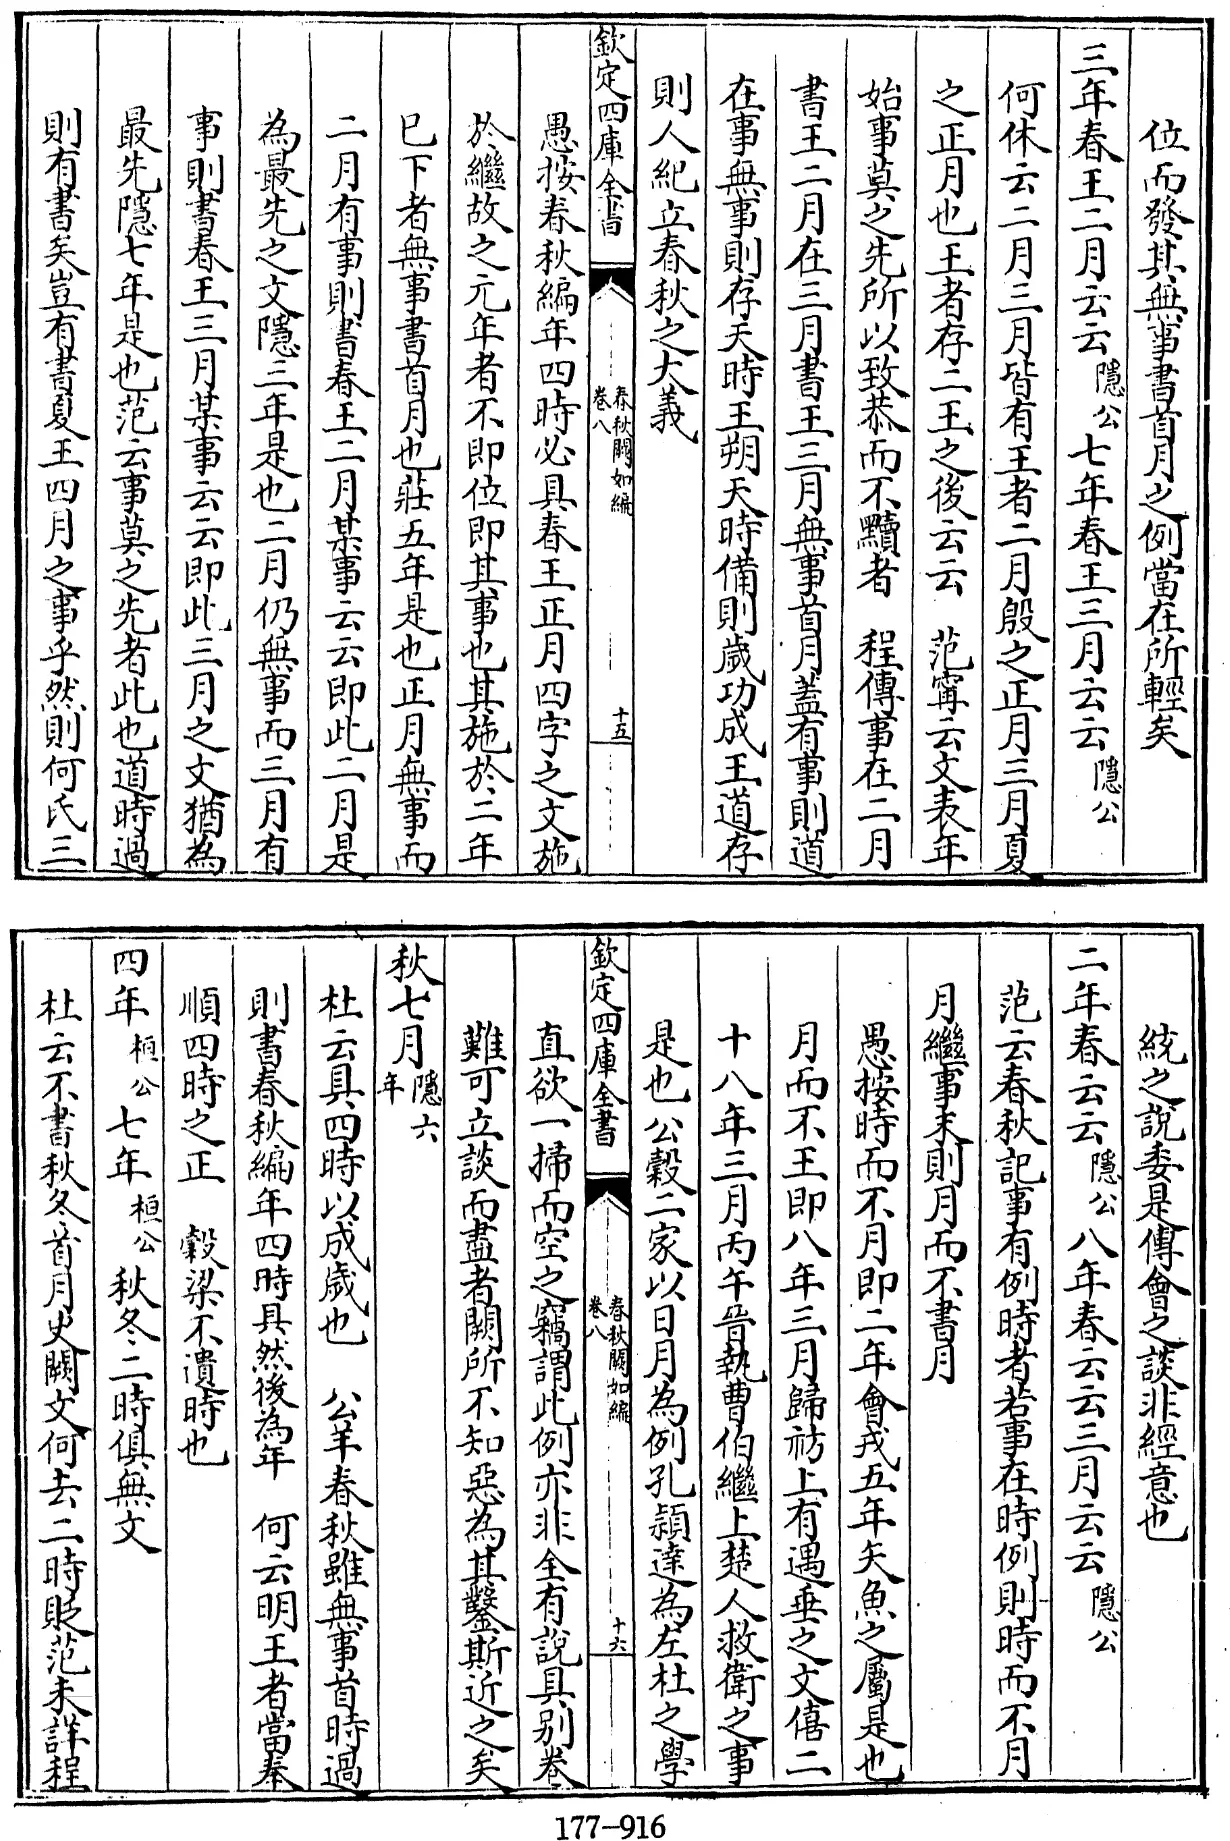 位而發其無事書首月之例當在所輕矣
三年春王二月云云隱公七年春王三月云云隱公
何休云二月三月皆有王者二月殷之正月三月夏
之正月也王者存二王之後云云 范寗云文表年
始事莫之先所以致恭而不黷者 程傳事在二月
書王二月在三月書王三月無事首月蓋有事則道
在事無事則存天時王朔天時備則歲功成王道存
則人紀立春秋之大義
欽定四庫全書
春秋闕如編
卷八
十五
愚按春秋編年四時必具春王正月四字之文施
於繼故之元年者不即位即其事也其施於二年
已下者無事書首月也莊五年是也正月無事而
二月有事則書春王二月某事云云即此二月是
為最先之文隱三年是也二月仍無事而三月有
事則書春王三月某事云云即此三月之文猶為
最先隱七年是也范云事莫之先者此也道時過
則有書矣豈有書夏王四月之事乎然則何氏三
統之說委是傅會之談非經意也
二年春云云隱公八年春云云三月云云隱公
范云春秋記事有例時者若事在時例則時而不月
月繼事末則月而不書月
愚按時而不月即二年會戎五年矢魚之屬是也
月而不王即八年三月歸祊上有遇垂之文僖二
十八年三月丙午晉執曹伯繼上楚人救衛之事
是也公糓二家以日月為例孔頴達為左杜之學
欽定四庫全書
春秋闕如編
卷八
十六
直欲一掃而空之竊謂此例亦非全有說具別卷
難可立談而盡者闕所不知惡為其鑿斯近之矣
秋七月隱六年
杜云具四時以成歲也 公羊春秋雖無事首時過
則書春秋編年四時具然後為年 何云明王者當奉
順四時之正 糓梁不遺時也
四年桓公七年桓公秋冬二時俱無文
杜云不書秋冬首月史闕文何去二時貶范未詳程
177-916